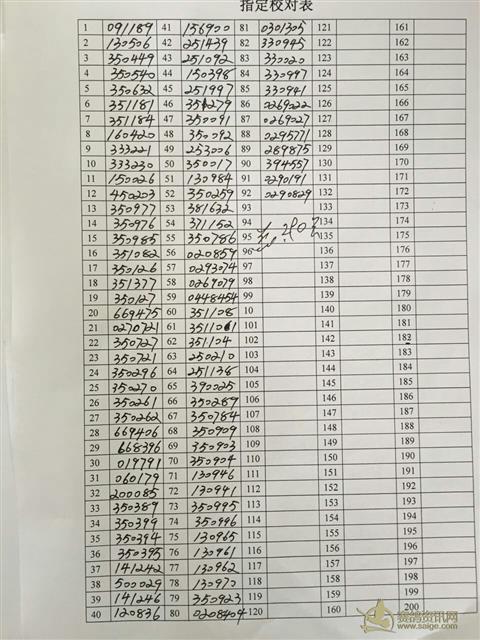 指定校对表
1 091189 41 156900 81 0301305 121 161
2 130506 42 251439 82 330945 122 162
3 350449 43 251092 83 330020 123 163
4 350540 44 150398 84 330997 124 164
5 350632 45 251997 85 330941 125 165
6 351181 46 351279 86 0269022 126 166
7 351184 47 350091 87 0269027 127 167
8 160420 48 350092 88 0295771 128 168
9 333221 49 253006 89 289875 129 169
10 333230 50 350017 90 394557 130 170
11 150026 51 130984 91 0290191 131 171
12 450203 52 350259 92 0290829 132 172
13 350977 53 381632 93 133 173
14 350976 54 371152 94 134 174
15 350985 55 350786 95 135 175
16 351082 56 020859 96 136 176
17 350126 57 0293074 97 137 177
18 351377 58 0269079 98 138 178
19 350127 59 0448454 99 139 179
20 669475 60 351108 10 140 180
21 0270721 61 351101 101 141 181
22 350727 62 351104 102 142 182
23 350721 63 250210 103 143 183
24 350296 64 251138 104 144 184
25 350270 65 390025 105 145 185
26 350261 66 350289 106 146 186
27 350262 67 350784 107 147 187
28 669406 68 350909 108 148 188
29 668396 69 350903 109 149 189
30 019791 70 350904 110 150 190
31 060179 71 130946 111 151 191
32 200085 72 130941 112 152 192
33 350389 73 350995 113 153 193
34 350399 74 350996 114 154 194
35 350394 75 130965 115 155 195
36 350395 76 130961 116 156 196
37 141242 77 130962 117 157 197
38 500029 78 130970 118 158 198
39 141246 79 350923 119 159 199
40 120836 80 0208404 120 160 200
赛鸽资讯网
www.saige.com